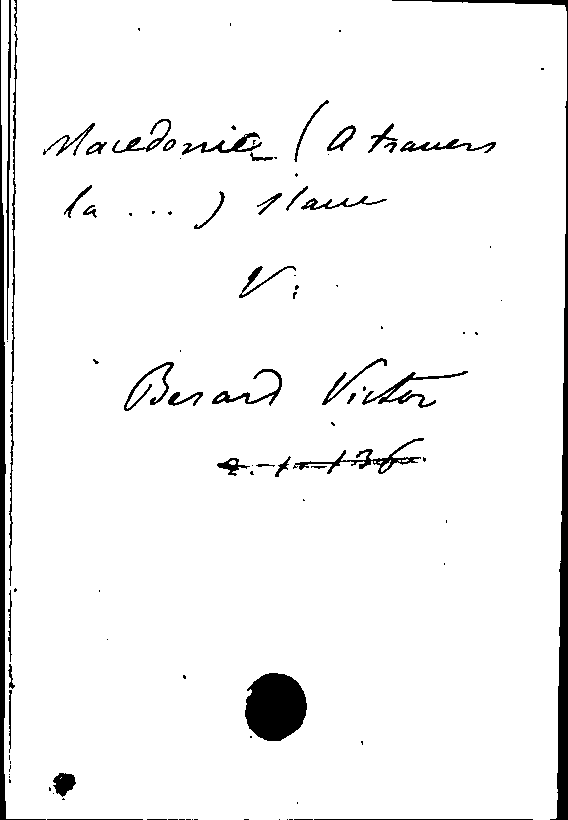 Macedonie (A travers
la ...) slave
V:
Berard Victor
2.1.136